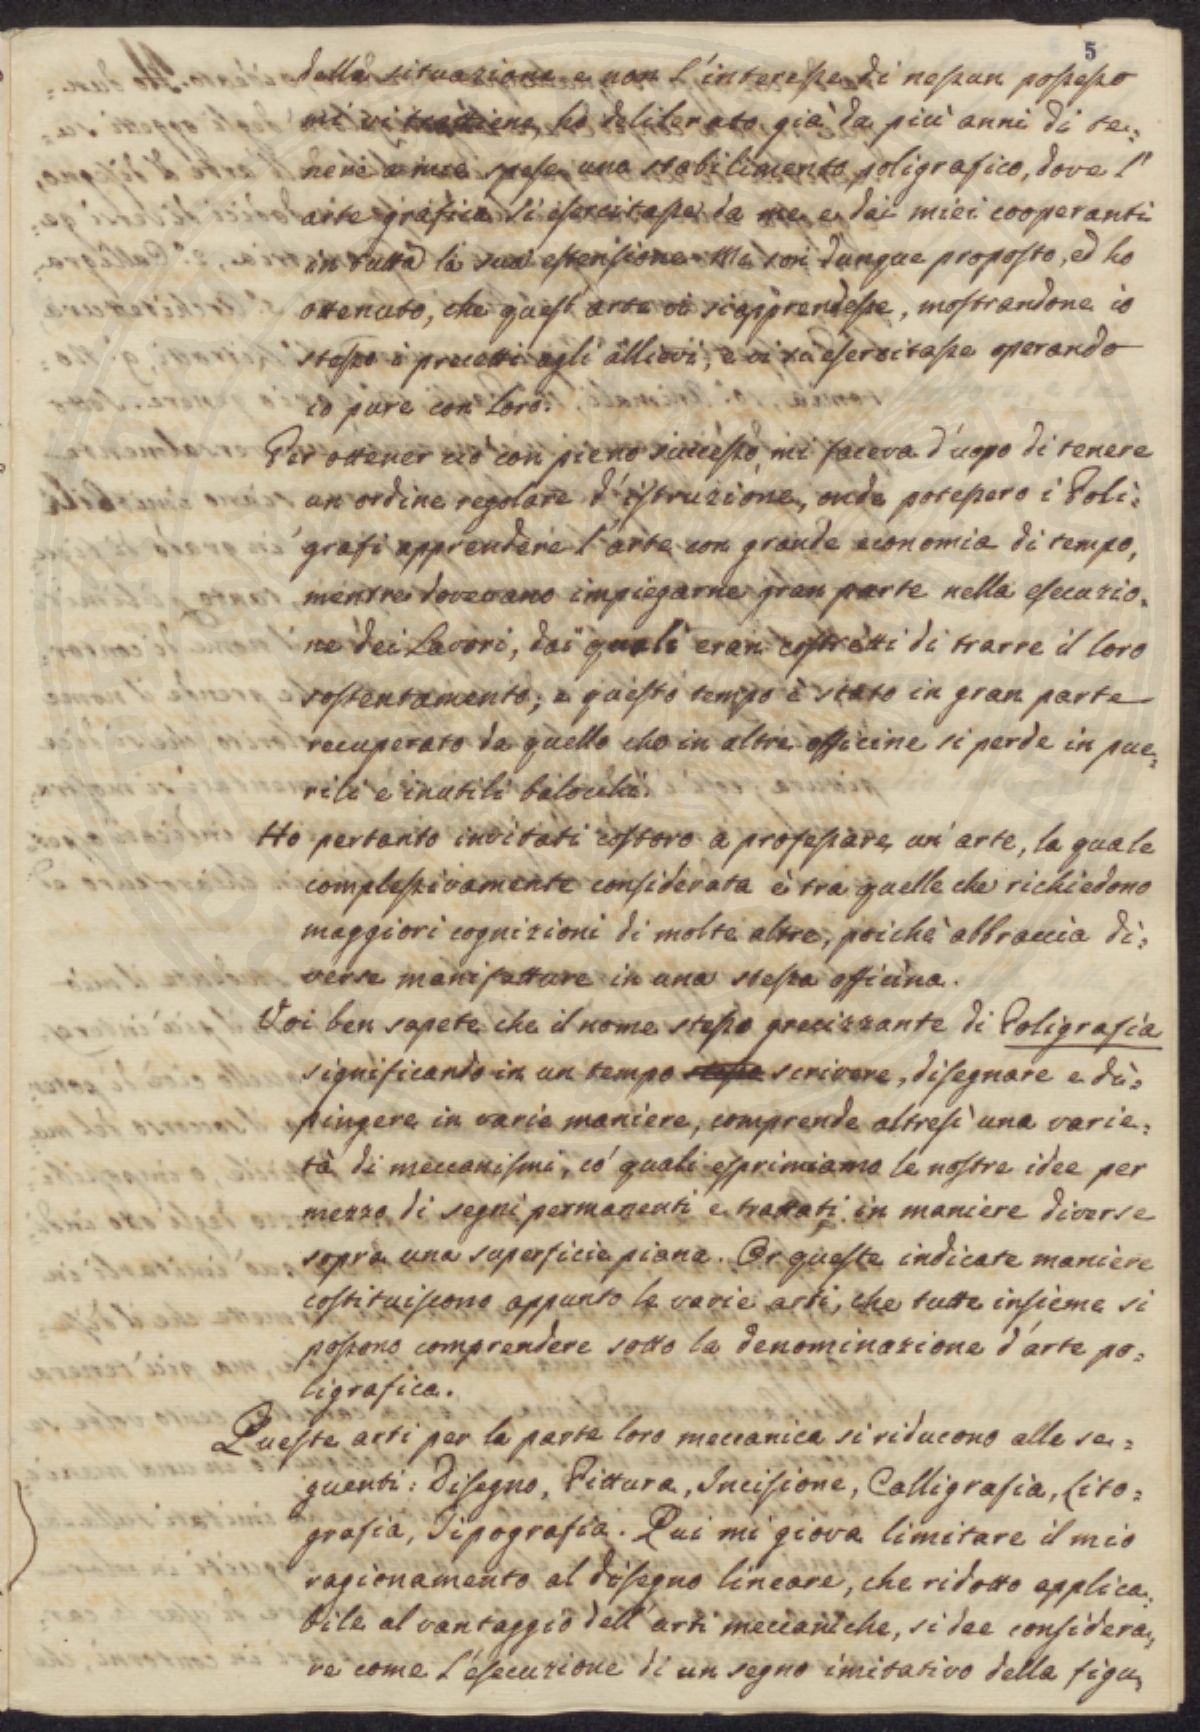 5
della situazione e non l'interesse di nessun possesso
mi vi trattiene, ho deliberato già da più anni di te=
nere a mie spese uno stabilimento poligrafico, dove l'
arte grafica si esercitasse da me e dai miei cooperanti
in tutta la sua estensione. Mi son dunque proposto, ed ho
ottenuto, che quest'arte vi si apprendesse, mostrandone io
stesso i precetti agli allievi, e vi si esercitasse operando
io pure con loro.
Per ottener ciò con pieno successo, mi faceva d'uopo di tenere
un ordine regolare d'istruzione, onde potessero i Poli=
grafi apprendere l'arte con grande economia di tempo,
mentre dovevano impiegarne gran parte nella esecuzio=
ne dei Lavori, dai quali eran costretti di trarre il loro
sostentamento; e questo tempo è stato in gran parte
recuperato da quello che in altre officine si perde in pue=
rili e inutili balocchi.
Ho pertanto invitati costoro a professare un'arte, la quale
complessivamente considerata è tra quelle che richiedono
maggiori cognizioni di molte altre, poichè abbraccia di=
verse manifatture in una stessa officina.
Voi ben sapete che il nome stesso grecizzante di Poligrafia
significando in un tempo stesso scrivere, disegnare e di=
pingere in varie maniere, comprende altresì una varie=
tà di meccanismi, co' quali esprimiamo le nostre idee per
mezzo di segni permanenti e trattati in maniere diverse
sopra una superficie piana. Or queste indicate maniere
costituiscono appunto le varie arti, che tutte insieme si
possono comprendere sotto la denominazione d'arte po=
ligrafica.
Queste arti per la parte loro meccanica si riducono alle se=
guenti: Disegno, Pittura, Incisione, Calligrafia, Lito=
grafia, Tipografia. Qui mi giova limitare il mio
ragionamento al disegno lineare, che ridotto applica=
bile al vantaggio dell'arti meccaniche, si dee considera=
re come l'esecuzione di un segno imitativo della figu=